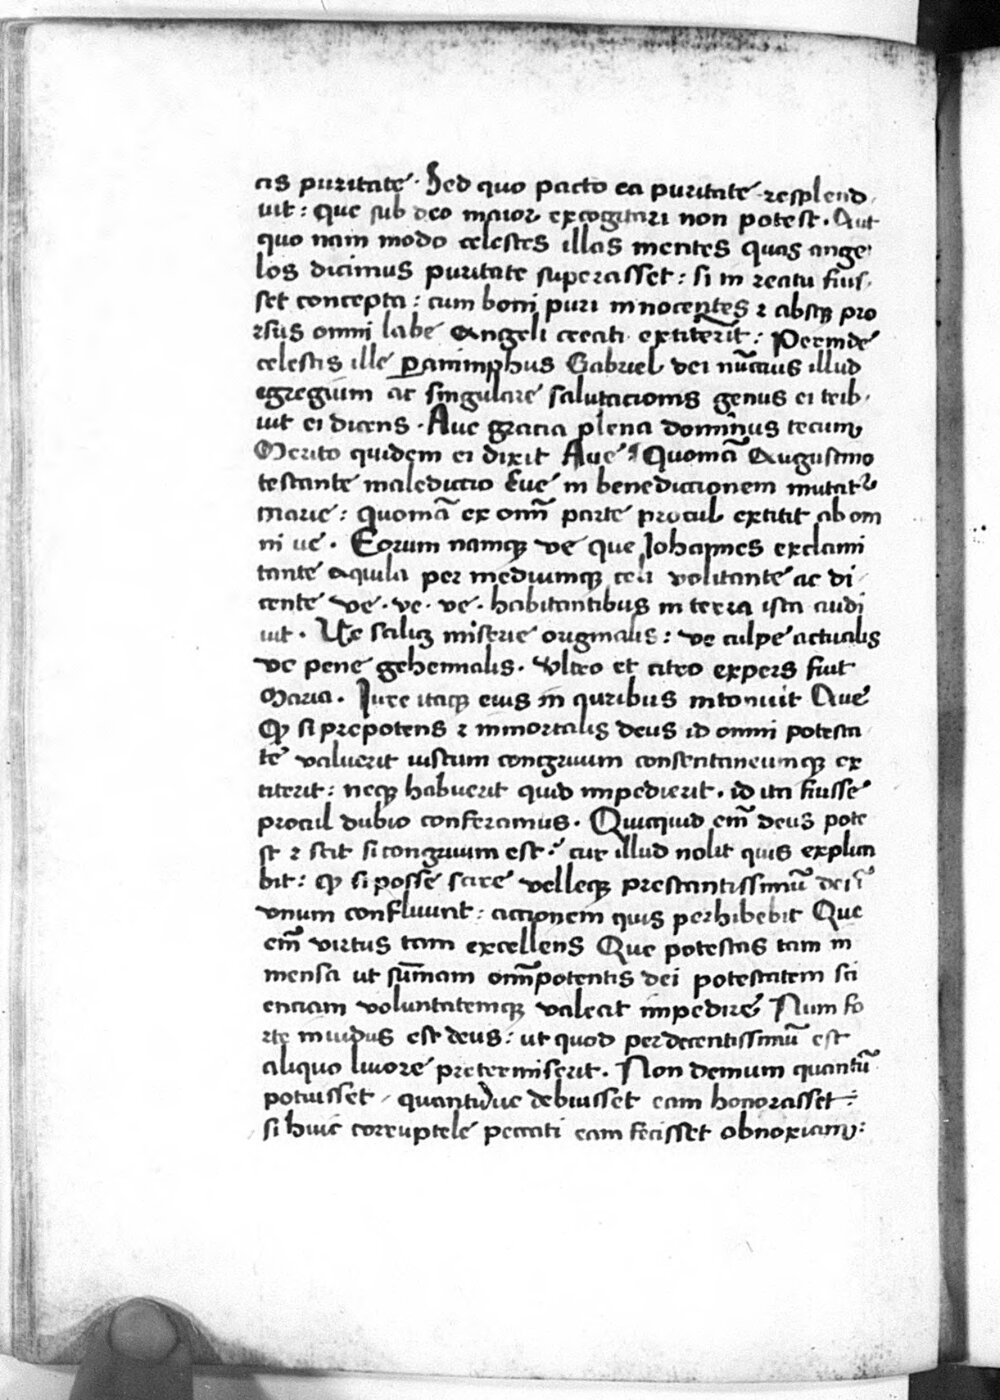 cis puritate · Sed quo pacto ea puritate resplend,
uit : que sub deo maior excogitari non potest . Aut
quo nam modo celestes illas mentes quas ange,
los dicimus puritate superasset : si in reatu fuis,
set concepta : cum boni puri innocentes ⁊ absqꝫ pro
rsus omni labe Angeli creati extiterīt : Perinde
celestis ille Paranimphus Gabriel dei nūcius illud
egregium ac singulare salutacionis genus ei trib,
uit ei dicens . Ave gracia plena dominus tecum
Merito quidem ei dixit Ave ⁊ Quoniā Augustino
testante maledictio Eve in benedictionem mutatᷣ
marie : quoniā ex omī parte procul extitit ab om
ni ve . Eorum namqꝫ ve que Johannes exclami
tante aquila per mediumqꝫ celi volitante ac di,
cente ve . ve . ve . habitantibus in terra ista audi
uit . Ve scilicꝫ miserie originalis : ve culpe actualis
ve pene gehennalis . Ultro et citro expers fuit
Maria . Jure itaqꝫ eius in auribus intonuit Ave
Qꝫ si prepotens ⁊ inmortalis deus id omni potesta
te valuerit iustum congruum consentaneumqꝫ ex
titerit : neqꝫ habuerit quid impedierit . id ita fuisse
procul dubio conferamus . Quicquid em̄ deus pote
st ⁊ scit si congruum est : cur illud nolit quis explica
bit : qꝫ si posse scire velleqꝫ prestantissimū dei ī
vnum confluunt : actionem quis perhibebit Que
em̄ virtus tam excellens Que potestas tam in
mensa ut sum̄am om̄ipotentis dei potestatem sci
enciam voluntatemqꝫ valeat impedire Num fo
rte inuidus est deus : ut quod perdecentissimū est
aliquo livore pretermiserit . Non demum quantū
potuisset , quantūve debuisset eam honorasset :
si huic corruptele peccati eam fecisset obnoxiam :